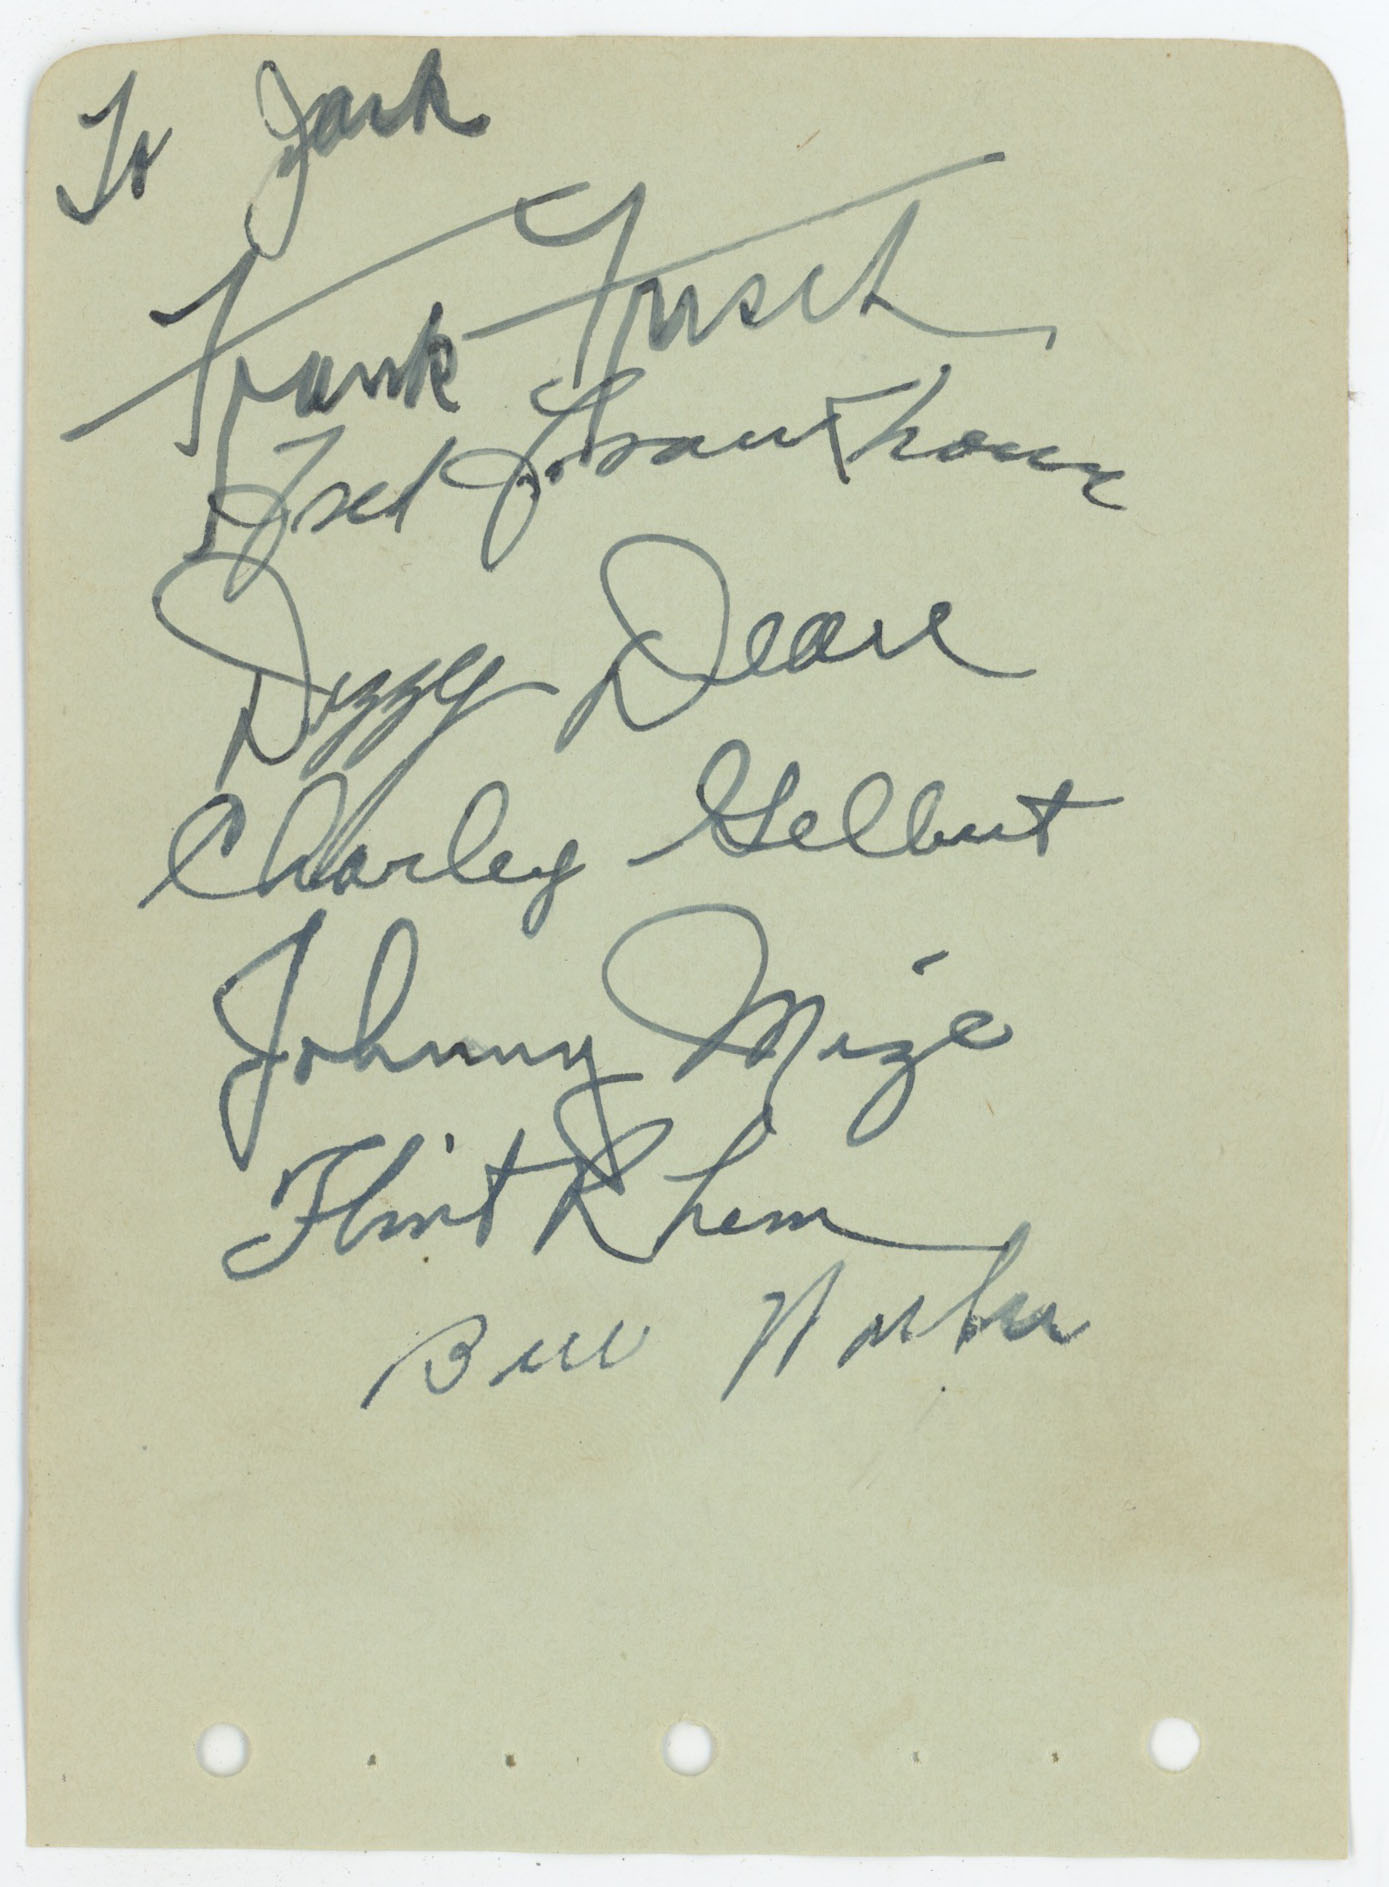 To Jack
Frank Frisch
Fred Frankhouse
Dizzy Dean
Charley Gelbert
Johnny Mize
Flint Rhem
Bill Walker